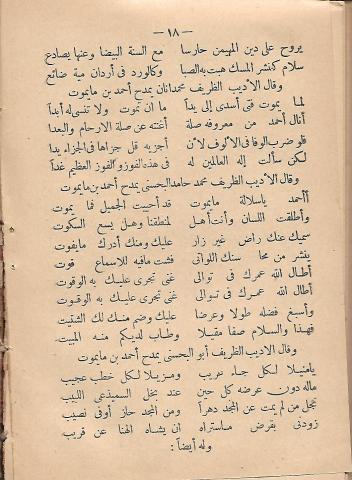 — ١٨ —
يروح على دين المهيمن حارسا مع السنة البيضا وعنها يصادع
سلام كنشر المسك هبت به الصبا وكالورد في أردان مية ضائع
وقال الأديب الظريف محمدانان يمدح أحمد بن مايموت
لما يموت فتى أسدى إلى يداً ما ان تموت ولا تنسى له أبداً
أنال أحمد من معروفه صلة أغنته عن صلة الارحام والبعدا
فلو ضرب الوفا في الألوف لأن أجزيه قل جزاها في الجزاء يدا
لكن سألت إله العالمين له في هذه الفوز والفوز العظيم غداً
وقال الأديب الظريف محمد حامد اليحسنى يمدح أحمد بن مايموت
أأحمد ياسلالة مايموت قد أحييت الجميل فما يموت
وأطلقت اللسان وأنت أهل لمنطقنا وهل يسع السكوت
سميك عنك راض غير زار عليك ومنك أدرك مايفوت
ينشر من محا سنك اللواتى فشت مافيه للاسماع قوت
أطال الله عمرك في توالى غنى تجرى عليك به الوقوت
أطال الله عمرك في توالى غنى تجرى عليك به الوقوت
وأسبغ فضله طولا وعرضا عليك وضم منك لك الشتيت
فهذا والسلام صفا مقيلا وطاب لديكم منه المبيت
وقال الاديب الظريف أبو اليحسنى يمدح أحمد بن مايموت
يامنيلا لكل جاء غريب ومزيلا لكل خطب عجيب
ماله دون عرضه كل حين عند بخل السميذعى اللبيب
نجل من لم يمت عن المجد دهراً ومن المجد حاز أوفى نصيب
زودنى بقرض ماستراه ان يشاه الهنا عن قريب
وله أيضاً :